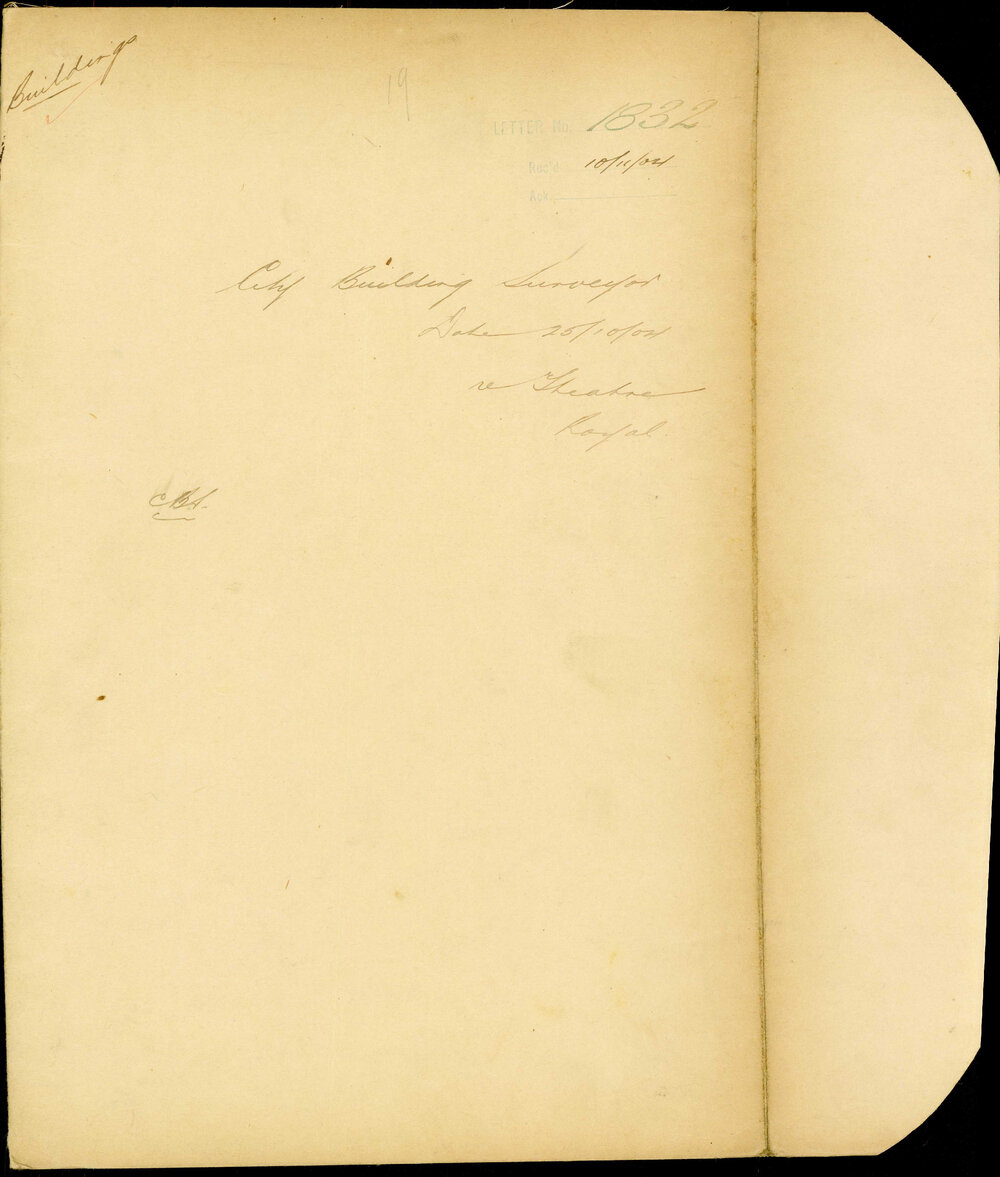 Building
19
LETTER No. 1832
Rec'd 10/11/04
Ack.
City Building Surveyor
Date 25/10/04
re Theatre
Royal
CBS.